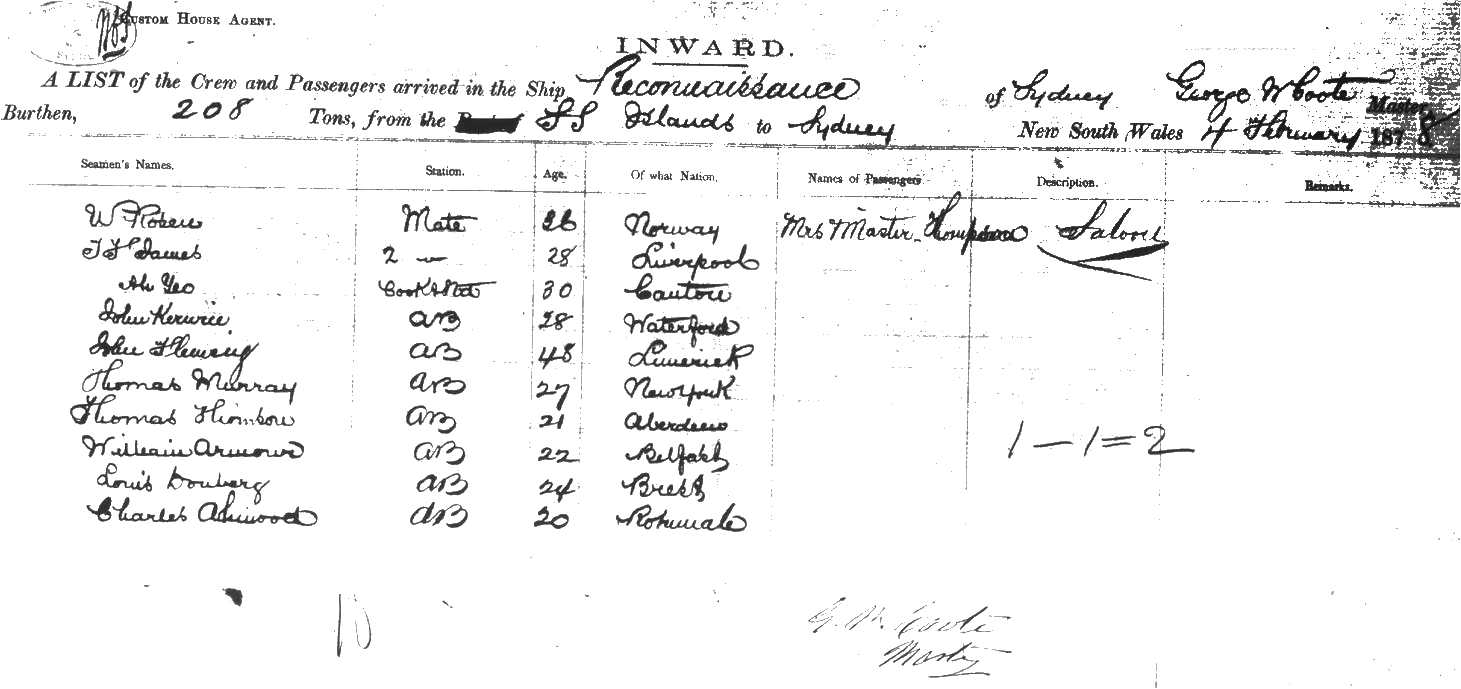 CUSTOM HOUSE AGENT.
INWARD.
A LIST of the Crew and Passengers arrived in the Ship Reconnaissance of Sydney George W Coote Master
Burthen, 208 Tons, from the SS Islands to Sydney New South Wales 4 February 1878
Seamen's Names. Station. Age. Of what Nation. Names of Passengers. Description. Remarks.
W Mate 26 Norway Mrs & Master Thompson Saloon
James 2 " 28 Liverpool
Ah Yeo Cook & Std 30 Canton
John AB 28 Waterford
John Fleming AB 48 Limerick
Thomas Murray AB 27 New York
Thomas AB 21 Aberdeen
William Armour AB 22 Belfast
Louis AB 24 Brest
Charles AB 20
1 – 1 = 2
10
G. W. Coote
Master